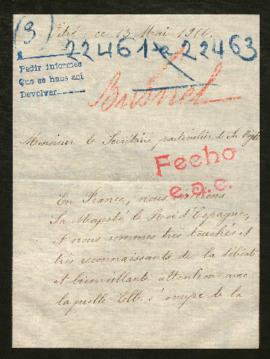 (9)
ce 13 Mai 1916.
22461 a 22463
Pedir informes
Que se haga así
Devolver
Monsieur le Secrétaire particulier de Sa
Fecho
e.g.c.
En France, nous
Sa Majesté le Roi d'Espagne,
et nous sommes très touchés et
très reconnaissants de la délicate
et bienveillante attention avec
laquelle Elle s' de la